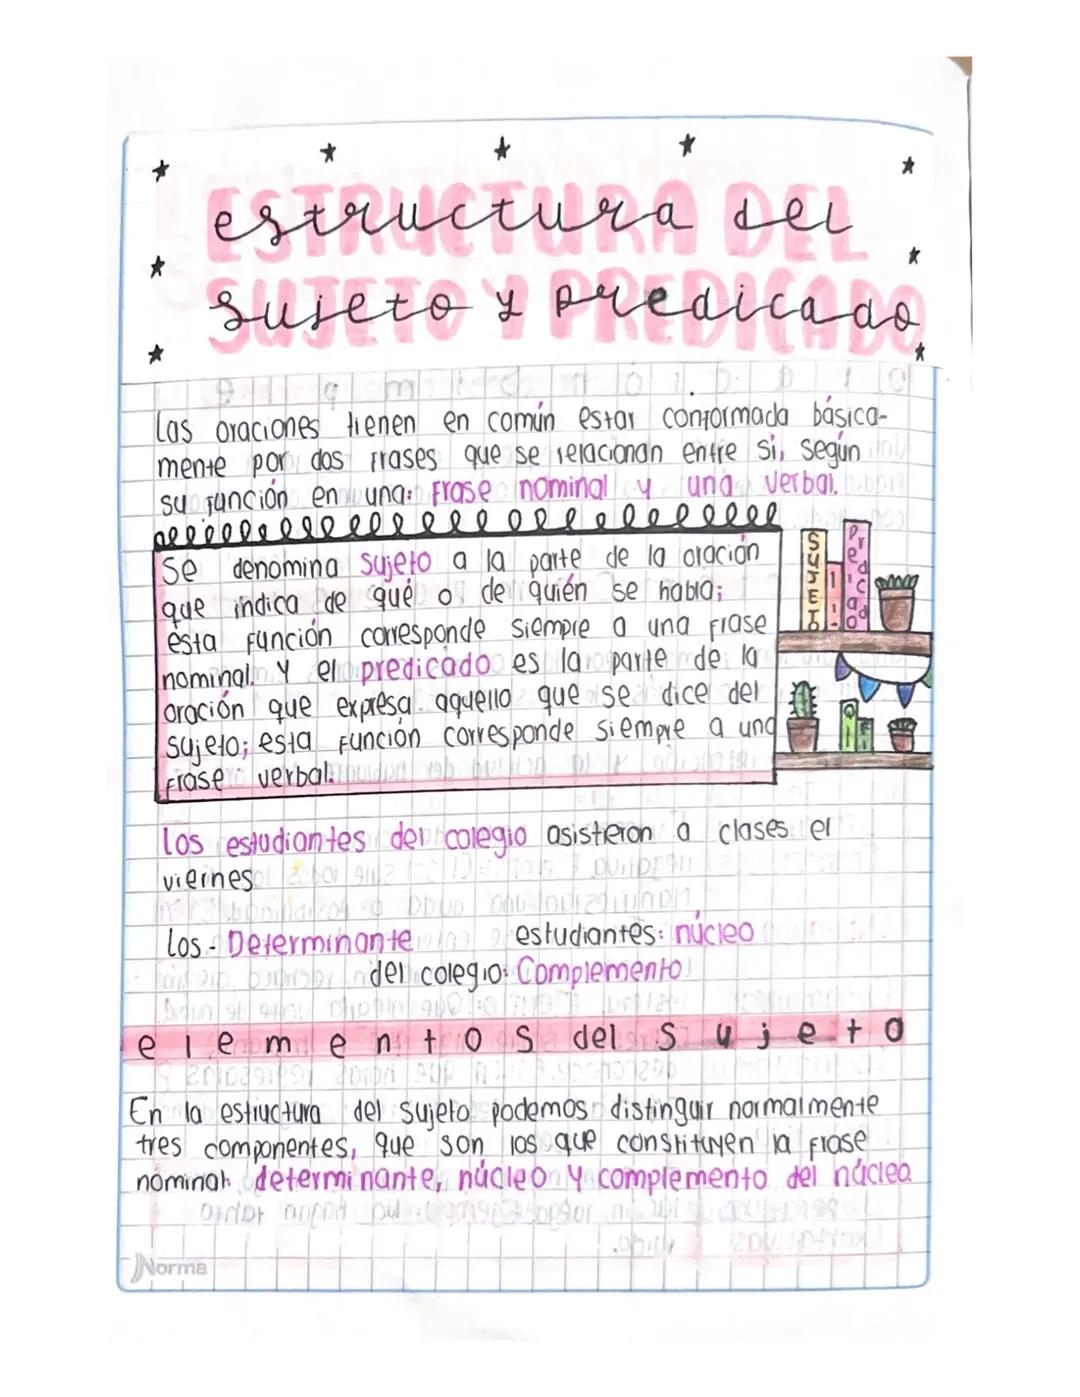 ESTRUCTURA DEL
estructura del
SUJETO Y PREDICADO
sujeto y predicado
Las oraciones tienen en común estar conformada básica-
mente por dos frases que se relacionan entre si, según
su función en una: Frase nominal y una verbal.
Se denomina sujeto a la parte de la oración
que indica de qué o de quién se habla;
esta función corresponde siempre a una frase
nominal. Y el predicado es la parte de la
oración que expresa aquello que se dice del
sujeto; esta función corresponde siempre a una
frase verbal.
SUJETO
Predicado
Los estudiantes del colegio asistieron a clases el
viernes
Los - Determinante estudiantes: núcleo
del colegio: Complemento
elementos del sujeto
En la estructura del sujeto podemos distinguir normalmente
tres componentes, que son los que constituyen la frase
nominal: determinante, núcleo y complemento del núcleo.
Norma